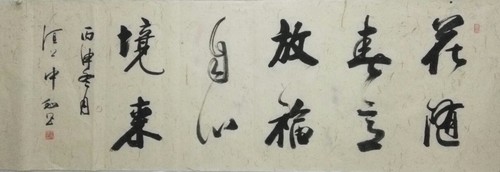 花随
春意
放福
自心
境来
丙申冬月
中